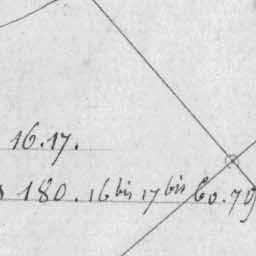 16.17.
180. 16 bis 17 bis 60. 79